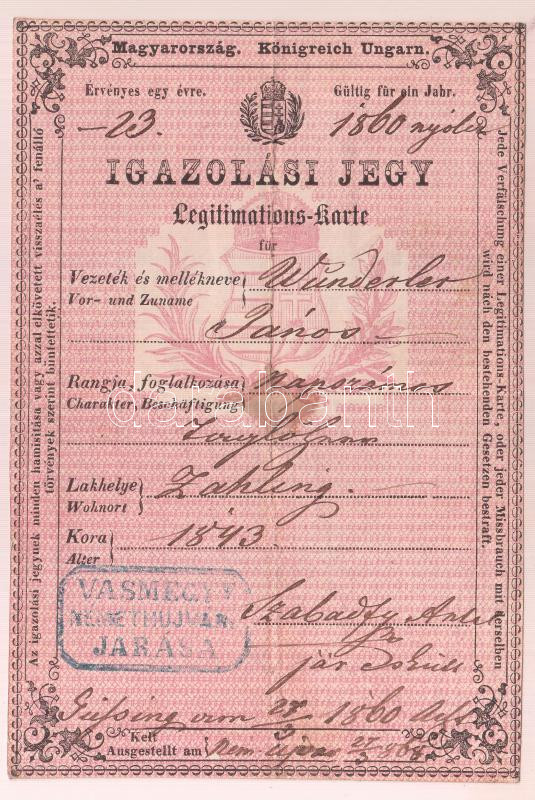 Magyarország. Königreich Ungarn.
Érvényes egy évre. Gültig für ein Jahr.
23. 1860
IGAZOLÁSI JEGY
Legitimations-Karte
für
Vezeték és mellékneve Wunderler
Vor- und Zuname
János
Rangja, foglalkozása napszámos
Charakter, Beschäftigung
Taglöhner
Lakhelye Zahling.
Wohnort
Kora 1843
Alter
VASMEGYE
NÉMETHUJVÁR.
JÁRÁSA
Szabadfy Antal
jár.
Güssing am 1860
Kelt
Ausgestellt am
Az igazolási jegynek minden hamisítása vagy azzal elkövetett visszaélés a' fenálló
törvények szerint büntettetik.
Jede Verfälschung einer Legitimations-Karte, oder jeder Missbrauch mit derselben
wird nach den bestehenden Gesetzen bestraft.
darabanth